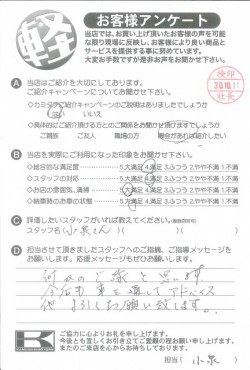 軽
お客様アンケート
当店では、お買い上げ頂いたお客様の声を可能
な限り現場に反映し、お客様により良い商品と
サービスを提供する事に努めています。
大変お手数ですが是非お声をお聞かせ下さい。
検印
A 当店はご紹介を大切にしております。
ご紹介キャンペーンについてお聞かせ下さい。
はい いいえ
ご親族 ご友人 職場の方 機会があれば紹介したい
B 当店を実際にご利用になった印象をお聞かせ下さい。
◇総合的な満足度 5.大満足 4.満足 3.ふつう 2.やや不満 1.不満
◇スタッフの対応 5.大満足 4.満足 3.ふつう 2.やや不満 1.不満
◇お店の雰囲気、清掃 5.大満足 4.満足 3.ふつう 2.やや不満 1.不満
◇納車時のお車の状態 5.大満足 4.満足 3.ふつう 2.やや不満 1.不満
C 評価したいスタッフがいれば教えてください。
スタッフ名( 小泉さん )
D 担当させて頂きましたスタッフへのご指摘、ご指導メッセージを
お願いします。応援メッセージもぜひお願いします。
何かのご縁と思います
今后も車を通してアドバイス
宜しくお願い致します。
K
ご協力に心よりお礼を申し上げます。
今後とも宜しくお引き立てご愛顧の程お願い申し上げます。
またのご来店を心からお待ちしております。
担当( 小泉 )